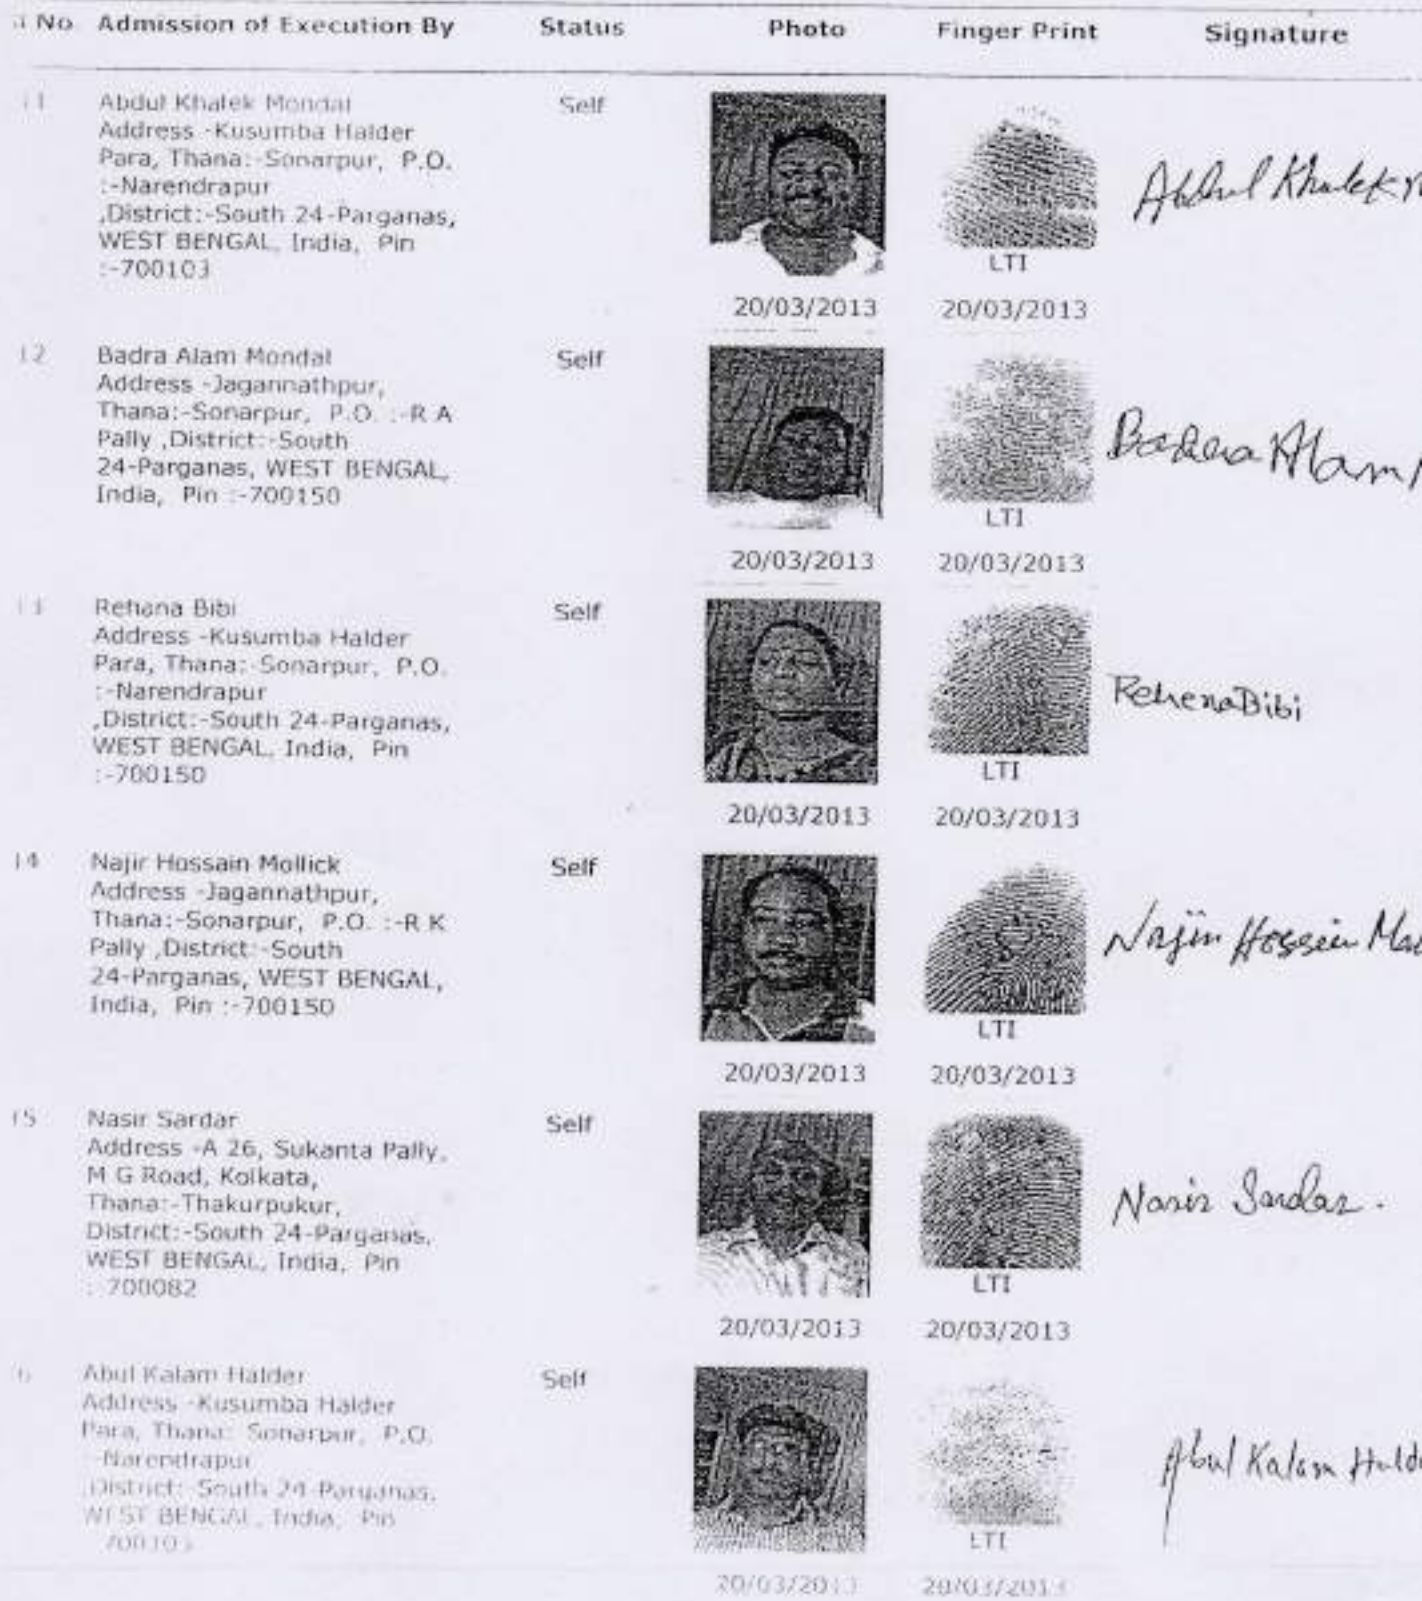 No. Admission of Execution By Status Photo Finger Print Signature
11 Abdul Khalek Mondal Self
Address -Kusumba Halder
Para, Thana:-Sonarpur, P.O.
:-Narendrapur
,District:-South 24-Parganas,
WEST BENGAL, India, Pin
:-700103
Abdul Khalek
LTI
20/03/2013 20/03/2013
12 Badra Alam Mondal Self
Address -Jagannathpur,
Thana:-Sonarpur, P.O. :-R A
Pally ,District:-South
24-Parganas, WEST BENGAL,
India, Pin :-700150
Badra Alam
LTI
20/03/2013 20/03/2013
13 Rehana Bibi Self
Address -Kusumba Halder
Para, Thana:-Sonarpur, P.O.
:-Narendrapur
,District:-South 24-Parganas,
WEST BENGAL, India, Pin
:-700150
Rehena Bibi
LTI
20/03/2013 20/03/2013
14 Najir Hossain Mollick Self
Address -Jagannathpur,
Thana:-Sonarpur, P.O. :-R K
Pally ,District:-South
24-Parganas, WEST BENGAL,
India, Pin :-700150
Najir Hossein
LTI
20/03/2013 20/03/2013
15 Nasir Sardar Self
Address -A 26, Sukanta Pally,
M G Road, Kolkata,
Thana:-Thakurpukur,
District:-South 24-Parganas,
WEST BENGAL, India, Pin
:-700082
Nasir Sardar.
LTI
20/03/2013 20/03/2013
6 Abul Kalam Halder Self
Address -Kusumba Halder
Para, Thana:-Sonarpur, P.O.
:-Narendrapur
,District:-South 24-Parganas,
WEST BENGAL, India, Pin
700103
Abul Kalam Hald
LTI
20/03/2013 20/03/2013